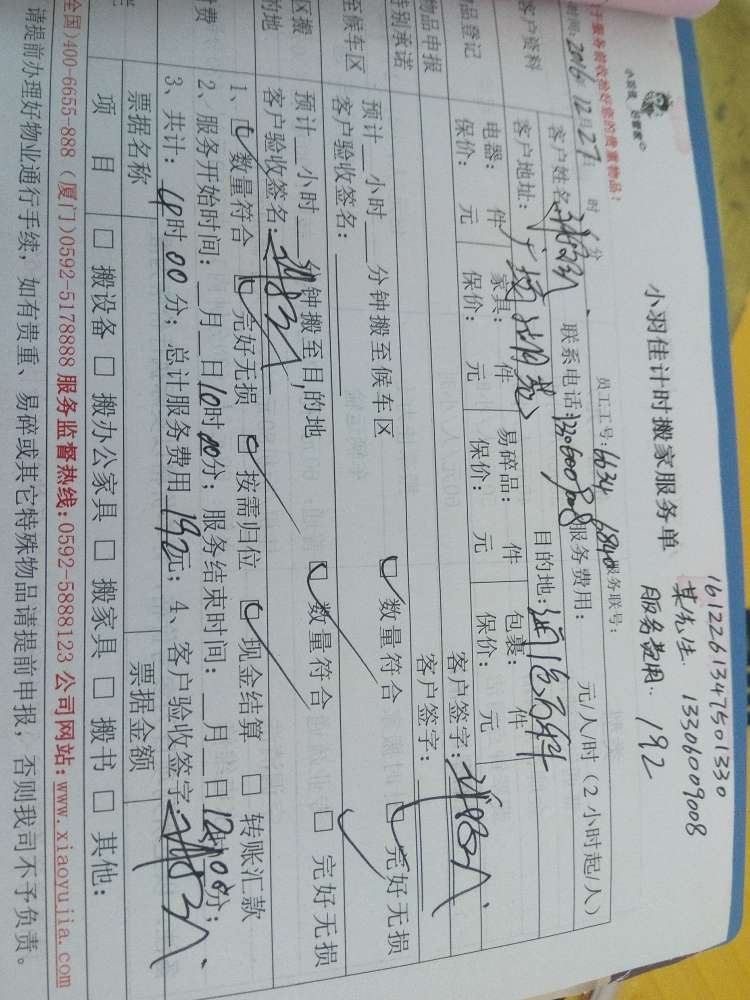 于服务前收拾好您的贵重物品!
小羽佳 好管家
小羽佳计时搬家服务单
161226134750 1330
某先生. 13306009008
服务费用. 192
时间: 2016年12月27日 时 分
员工工号: 6634 6840
服务联号:
客户资料
客户姓名:
联系电话: 13306009008
服务费用: 元/人/时(2小时起/人)
客户地址:
目的地:
物品登记
电器: 件 家具: 件 易碎品: 件 包裹: 件
客户签字:
物品申报
保价: 元 保价: 元 保价: 元 保价: 元
客户签字:
特别承诺
至候车区
预计 小时 分钟搬至候车区 数量符合 完好无损
客户验收签名:
区搬
的地
预计 小时 分钟搬至目的地 数量符合 完好无损
客户验收签名:
付费
1、 数量符合 完好无损 按需归位 现金结算 转账汇款
2、服务开始时间: 月 日10时00分; 服务结束时间: 月 日12时00分;
3、共计: 4时00分; 总计服务费用 192元; 4、客户验收签字:
票据名称 票据金额
项 目 搬设备 搬办公家具 搬家具 搬书 其他:
全国)400-6655-888 (厦门)0592-5178888 服务监督热线:0592-5888123 公司网站:www.xiaoyujia.com
请提前办理好物业通行手续, 如有贵重、易碎或其它特殊物品请提前申报, 否则我司不予负责。